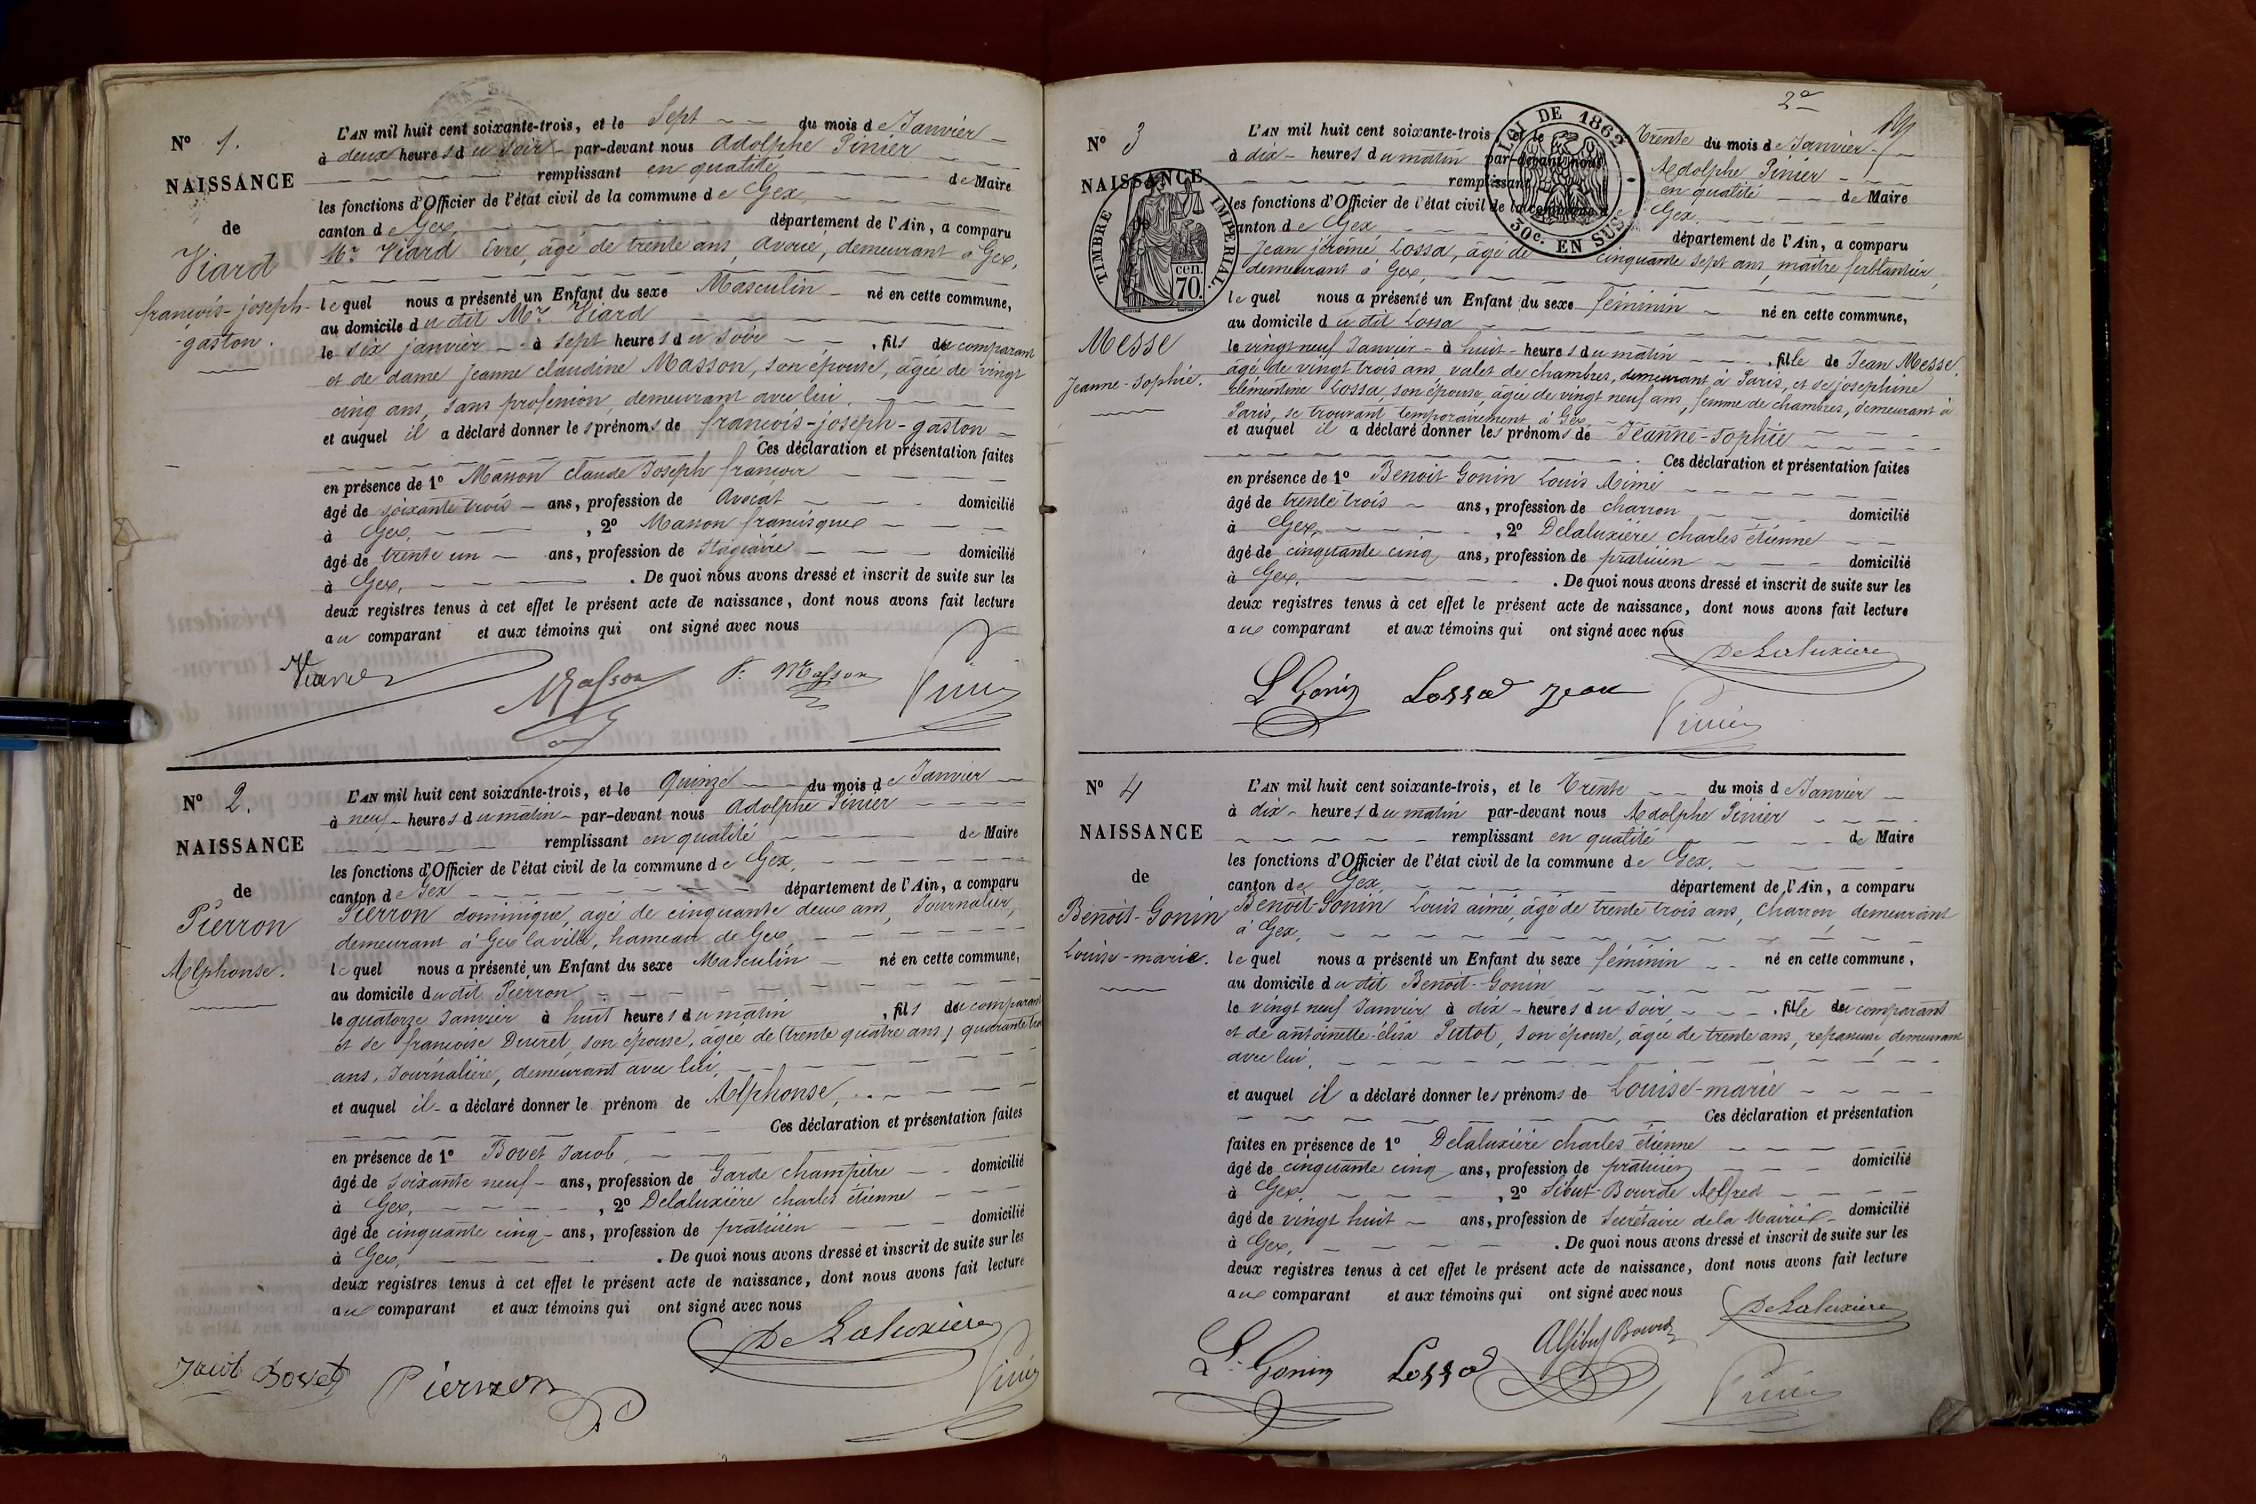 N° 1.
NAISSANCE
de
Viard
françois-joseph-
gaston.
L'AN mil huit cent soixante-trois, et le Sept du mois de Janvier
à deux heures du soir par-devant nous Adolphe Pinier
remplissant en qualité de Maire
les fonctions d'Officier de l'état civil de la commune de Gex,
canton de Gex, département de l'Ain, a comparu
Mr Viard Evre, âgé de trente ans, avoué, demeurant à Gex,
lequel nous a présenté un Enfant du sexe Masculin né en cette commune,
au domicile du dit Mr Viard
le six janvier à sept heures du soir, fils du comparant
et de dame Jeanne claudine Masson, son épouse, âgée de vingt
cinq ans, sans profession, demeurant avec lui.
et auquel il a déclaré donner les prénoms de françois-joseph-gaston
Ces déclaration et présentation faites
en présence de 1° Masson claude Joseph françois
âgé de soixante trois ans, profession de Avocat domicilié
à Gex, , 2° Masson francisque
âgé de trente un ans, profession de Stagiaire domicilié
à Gex, . De quoi nous avons dressé et inscrit de suite sur les
deux registres tenus à cet effet le présent acte de naissance, dont nous avons fait lecture
au comparant et aux témoins qui ont signé avec nous
Viard Masson F. Masson Pinier
N° 2.
NAISSANCE
de
Pierron
Alphonse.
L'AN mil huit cent soixante-trois, et le Quinze du mois de Janvier
à neuf heures du matin par-devant nous Adolphe Pinier
remplissant en qualité de Maire
les fonctions d'Officier de l'état civil de la commune de Gex,
canton de Gex département de l'Ain, a comparu
Pierron dominique, agé de cinquante deux ans, Journalier,
demeurant à Gex la ville, hameau de Gex,
lequel nous a présenté un Enfant du sexe Masculin né en cette commune,
au domicile du dit Pierron
le quatorze Janvier à huit heures du matin, fils du comparant
et de françoise Duret, son épouse, âgée de (trente quatre ans) quarante trois
ans, Journalière, demeurant avec lui,
et auquel il a déclaré donner le prénom de Alphonse,
Ces déclaration et présentation faites
en présence de 1° Bovet Jacob,
âgé de soixante neuf ans, profession de Garde champêtre domicilié
à Gex, , 2° Delaluxière charles étienne
âgé de cinquante cinq ans, profession de praticien domicilié
à Gex, . De quoi nous avons dressé et inscrit de suite sur les
deux registres tenus à cet effet le présent acte de naissance, dont nous avons fait lecture
aux comparant et aux témoins qui ont signé avec nous
De Laluxière
Jacob Bovet Pierron Pinier
2e
N° 3
NAISSANCE
TIMBRE IMPERIAL.
cen. 70.
LOI DE 1862
30c. EN SUS
Messe
Jeanne-Sophie.
L'AN mil huit cent soixante-trois, et le Trente du mois de Janvier
à dix heures du matin par-devant nous Adolphe Pinier
remplissant en qualité de Maire
les fonctions d'Officier de l'état civil de la commune de Gex,
canton de Gex département de l'Ain, a comparu
Jean jérômé Lossa, âgé de cinquante sept ans, maître ferblantier,
demeurant à Gex,
lequel nous a présenté un Enfant du sexe féminin né en cette commune,
au domicile du dit Lossa
le vingt neuf Janvier à huit heures du matin, fille de Jean Messe,
âgé de vingt trois ans valet de chambres, demeurant à Paris, et de josephine
clémentine Lossa, son épouse, âgée de vingt neuf ans, femme de chambres, demeurant à
Paris, se trouvant temporairement à Gex,
et auquel il a déclaré donner les prénoms de Jeanne-Sophie
Ces déclaration et présentation faites
en présence de 1° Benoit Gonin Louis Aimé
âgé de trente trois ans, profession de charron domicilié
à Gex, , 2° Delaluxière charles étienne
âgé de cinquante cinq ans, profession de praticien domicilié
à Gex, . De quoi nous avons dressé et inscrit de suite sur les
deux registres tenus à cet effet le présent acte de naissance, dont nous avons fait lecture
aux comparant et aux témoins qui ont signé avec nous
De Laluxière
L Gonin Lossa Jean Pinier
N° 4
NAISSANCE
de
Benoit-Gonin
Louise-marie.
L'AN mil huit cent soixante-trois, et le Trente du mois de Janvier
à dix heures du matin par-devant nous Adolphe Pinier
remplissant en qualité de Maire
les fonctions d'Officier de l'état civil de la commune de Gex,
canton de Gex, département de l'Ain, a comparu
Benoit-Gonin Louis aimé, âgé de trente trois ans, Charron, demeurant
à Gex,
lequel nous a présenté un Enfant du sexe féminin né en cette commune,
au domicile du dit Benoit-Gonin
le vingt neuf Janvier à dix heures du soir, fille du comparant
et de antoinette-élisa Putot, son épouse, âgée de trente ans, repasseuse, demeurant
avec lui,
et auquel il a déclaré donner les prénoms de Louise-marie
Ces déclaration et présentation
faites en présence de 1° Delaluxière charles étienne
âgé de cinquante cinq ans, profession de praticien domicilié
à Gex, , 2° Sibut-Bourde Alfred
âgé de vingt huit ans, profession de Secrétaire de la Mairie domicilié
à Gex, . De quoi nous avons dressé et inscrit de suite sur les
deux registres tenus à cet effet le présent acte de naissance, dont nous avons fait lecture
aux comparant et aux témoins qui ont signé avec nous
De Laluxière
L. Gonin Lossa A Sibut Bourde Pinier